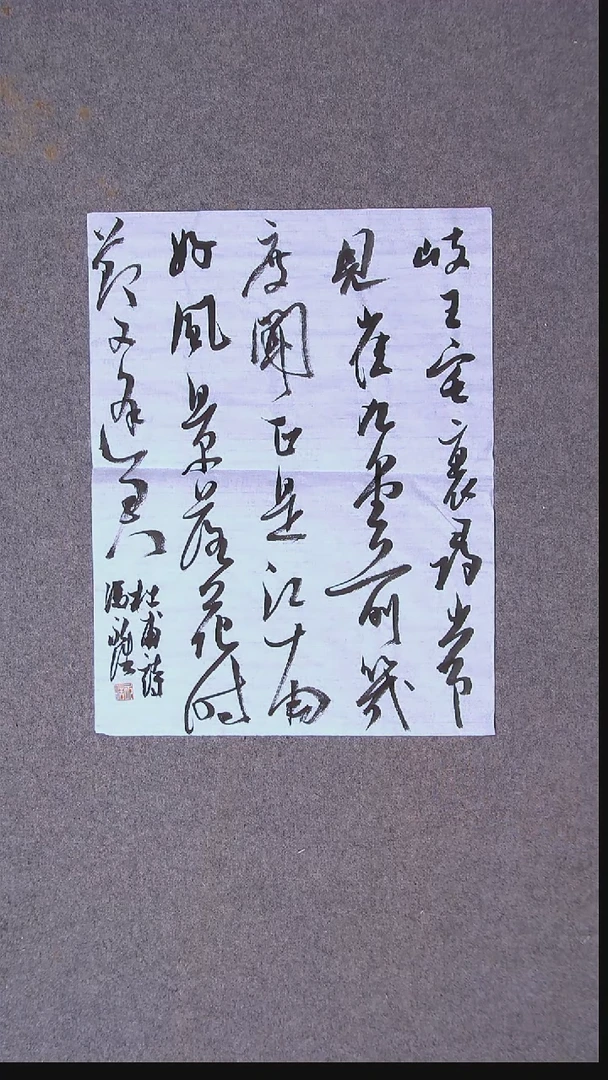 岐王宅裏尋常
見崔九堂前幾
度聞正是江南
好風景落花時
節又逢君
杜甫詩
馮